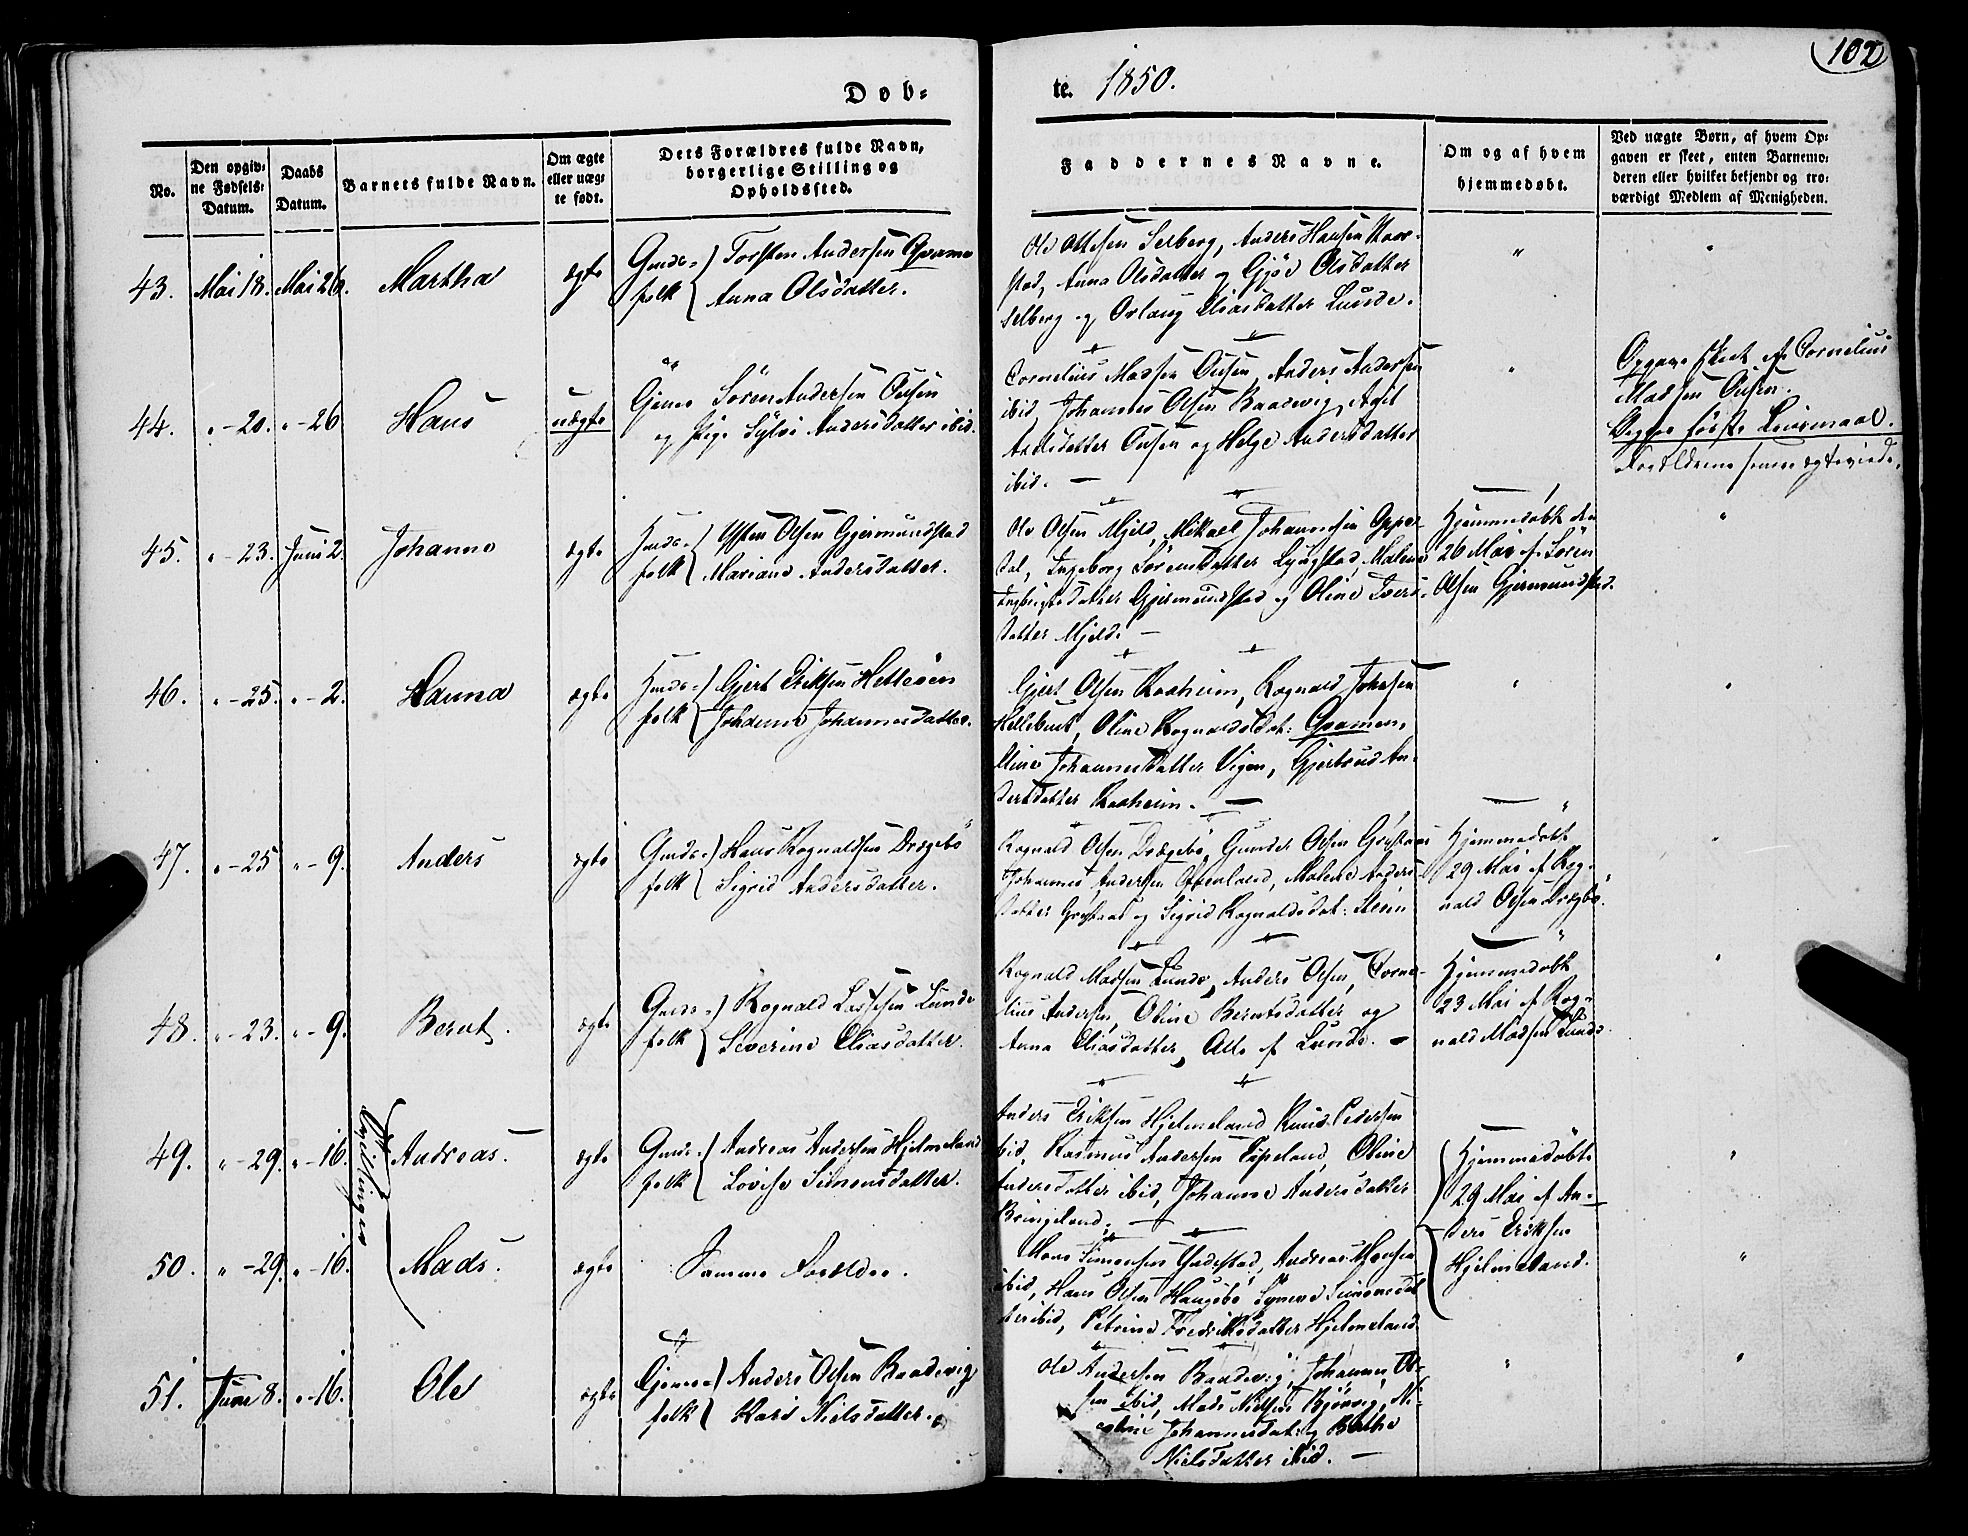 Døb-
te. 1850.
102
No.
Den opgiv-
ne Fødsels-
Datum.
Daabs
Datum.
Barnets fulde Navn.
Om ægte
eller uæg-
te født.
Dets Forældres fulde Navn,
borgerlige Stilling og
Opholdssted.
Faddernes Navne.
Om og af hvem
hjemmedøbt.
Ved uægte Børn, af hvem Op-
gaven er skeet, enten Barnemo-
deren eller hvilket bekjendt og tro-
værdigt Medlem af Menigheden.
43. Mai 18. Mai 26. Martha ægte
Gmds- folk Torsten Andersen Qvamme
Anna Olsdatter.
Ole Ottesen Selberg, Anders Hansen
stad, Anna Olsdatter og Gjøe Olsdatter
Selberg og Eliasdatter Lunde.
"
"
44. " - 20. " - 26 Hans uægte
Søren Andersen Ousen
og Pige Sylvi Andersdatter ibid.
Cornelius Madsen Ousen, Anders Andersen
ibid, Johannes Olsen Baadevig,
Ousen og Helge Andersdatter
ibid. —
"
Opgave skeet af Cornelius
Madsen Ousen.
Begges første Leiermaal.
Forældrene senere ægteviede.
45. " - 23. Juni 2. Johanne ægte
Huus- folk Olsen Gjermundstad
Mariane Andersdatter.
Ole Olsen Mjeld, Mikael Johannesen
dal, Ingeborg Sørensdatter Lyngstad, Malene
datter Gjermundstad og Oline Ivers-
datter Mjeld. —
Hjemmedøbt den
26 Mai af Søren
Olsen Gjermundstad.
"
46. " - 25. " - 2. Hanna ægte
Huus- folk Gjert Eriksen
Johanne Johannesdatter.
Gjert Olsen Raaheim, Rognald Johnsen
Oline Rognaldsdat: Qvammen,
Johannesdatter Vigen, Gjertrud An-
dersdatter Raaheim. —
"
"
47. " - 25 " - 9. Anders ægte
Gmds- folk Hans Rognaldsen Drægebø
Sigrid Andersdatter.
Rognald Olsen Drægebø, Gunder Olsen
Johannes Andersen Malene Anders-
datter og Sigrid Rognaldsdat:
Hjemmedøbt
29 Mai af Rog-
nald Olsen Drægebø.
"
48. " - 23. " - 9. Bernt. ægte
Gmds- folk Rognald Lassesen Lunde
Severine Eliasdatter.
Rognald Madsen Lunde, Anders Olsen, Corne-
lius Andersen, Oline Berntsdatter og
Anna Eliasdatter, Alle af Lunde. —
Hjemmedøbt
23 Mai af Rog-
nald Madsen Lunde.
"
Tvillinger
49. " - 29. " - 16. Andreas. ægte
Gmds- folk Andreas Andersen Hjelmeland
Lovise Simonsdatter.
Anders Eriksen Hjelmeland Knud Pedersen
ibid, Rasmus Andersen Espeland, Oline
Andersdatter ibid, Johanne Andersdatter
Bringeland. —
Hjemmedøbte
29 Mai af An-
ders Eriksen
Hjelmeland.
"
50. " - 29. " - 16. Mads. ægte
Samme Forældre.
Hans Simonsen Yndestad, Andreas Hansen
ibid, Hans Olsen Haugebø Synneve Simonsdat
ter ibid, Petrine Fredriksdatter Hjelmeland
"
51. Juni 8. " - 16. Ole ægte
folk Anders Olsen Baadevig
Kari Nielsdatter.
Ole Andersen Baadevig, Johannes Ol-
sen ibid, Mads Nielsen Bjørvig, Ni-
coline Johannesdat: og Berthe
Nielsdatter ibid. —
"
"